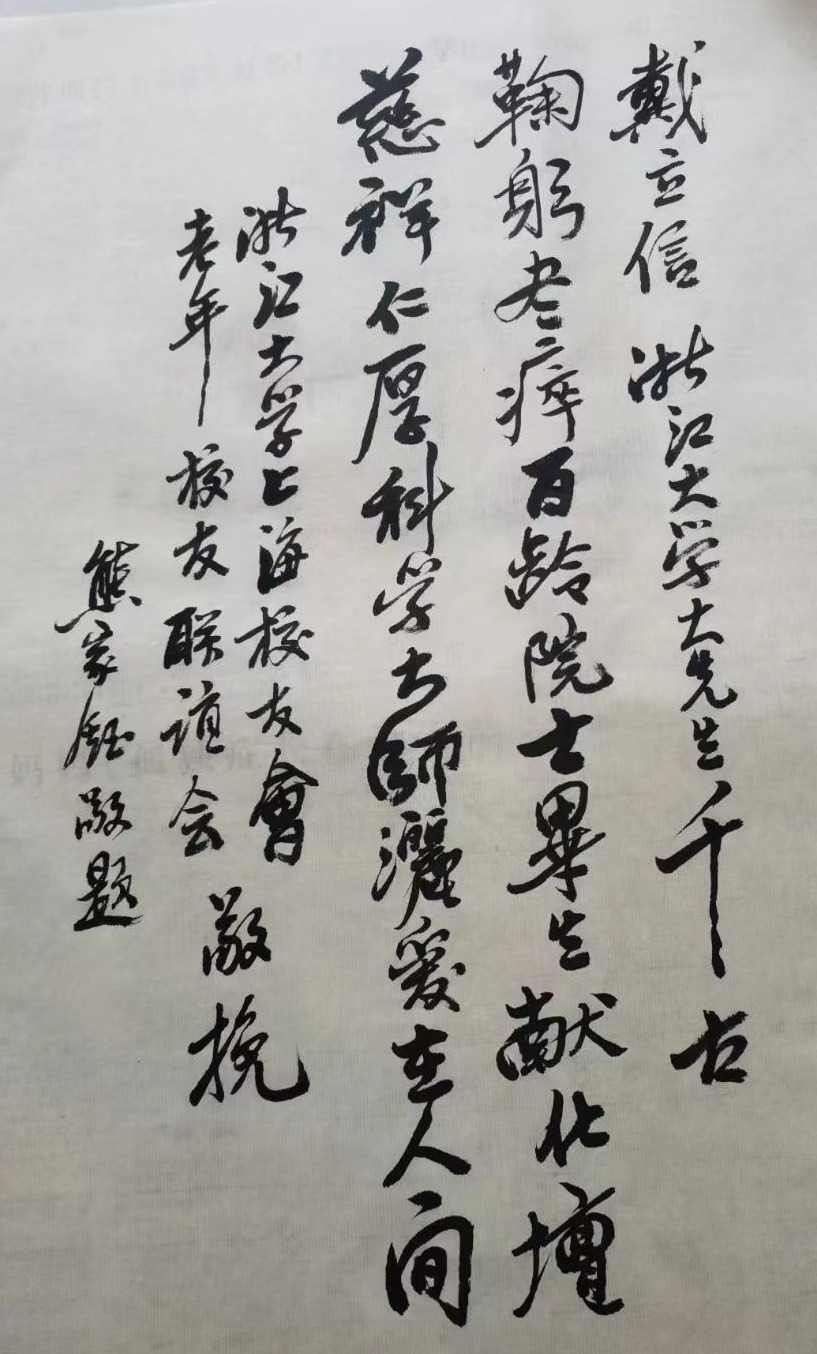 戴立信 浙江大学大先生千古
鞠躬尽瘁百龄院士畢生献化壇
慈祥仁厚科学大師灑爱在人间
浙江大学上海校友會
老年校友联谊会 敬挽
熊家钰敬题